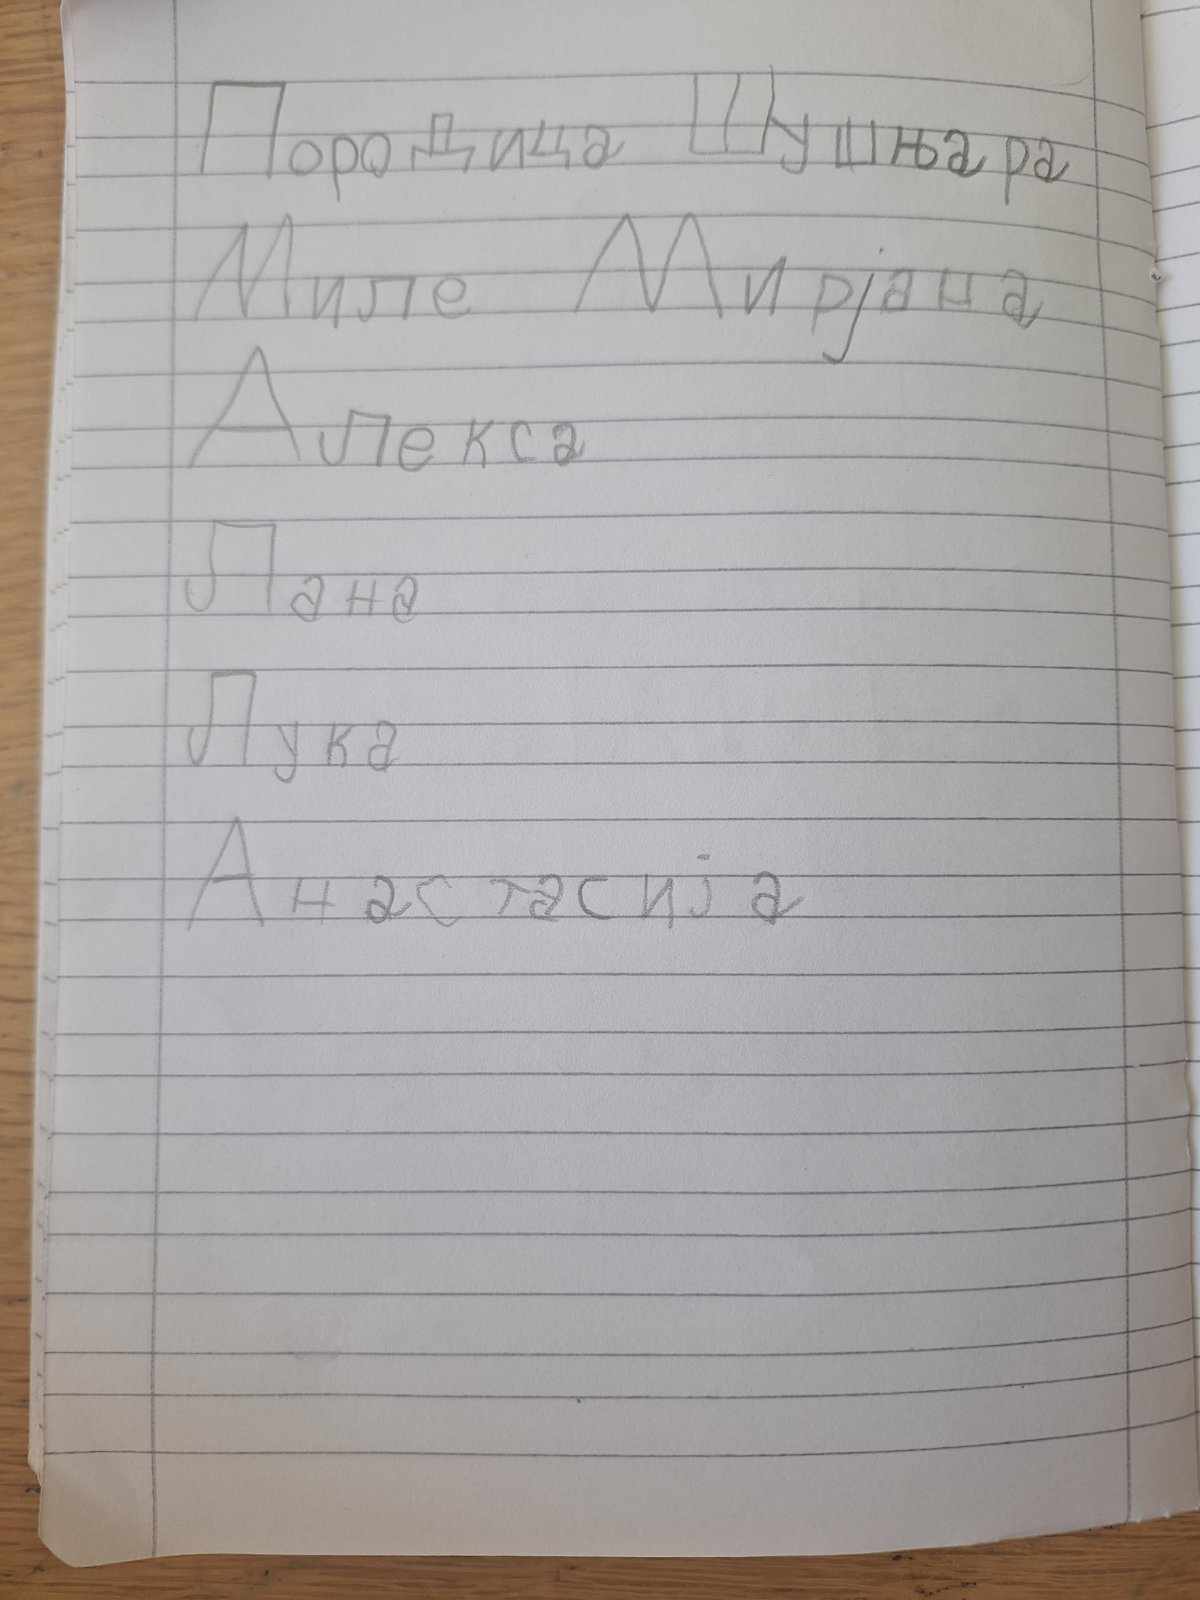 Породица Шушњара
Миле Мирјана
Алекса
Лана
Лука
Анастасија